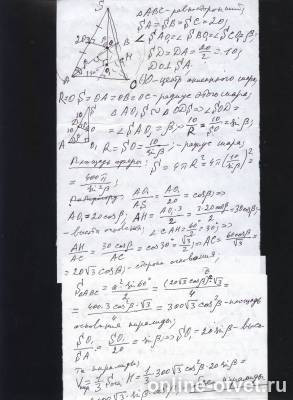 △ABC - равносторонний;
SA=SB=SC=20;
∠SAO₁=∠SBO₁=∠SCO₁=β;
SD=DA=20/2=10;
DO⊥SA
O - центр описанного шара;
R=OS=OA=OB=OC - радиус этого шара;
∠SOD=
=∠AO₁=β; 10/R=10/SO=sinβ;
R=SO=10/sinβ - радиус шара;
Площадь сферы: S=4πR²=4π(10/sinβ)²=
=400π/sin²β;
AO₁/AS=AO₁/20=cosβ ⇒
AO₁=20cosβ; AH=AO₁·3/2=3·20cosβ/2=30cosβ-
высота основания; ∠CAH=60°/2=30°;
AH/AC=30cosβ/AC=cos30°=√3/2; ⇒ AC=60cosβ/√3=
=20√3cosβ - сторона основания;
S ABC=a²sin60°/2=(20√3cosβ)²·√3/4=
=400·3cos²β·√3/4=300√3cos²β - площадь
основания пирамиды;
SO₁/SA=SO₁/20=sinβ ⇒ SO₁=20sinβ - высо-
та пирамиды;
V=1/3 S осн H=1/3·300√3cos²β·20sinβ=
пирамиды
online-otvet.ru